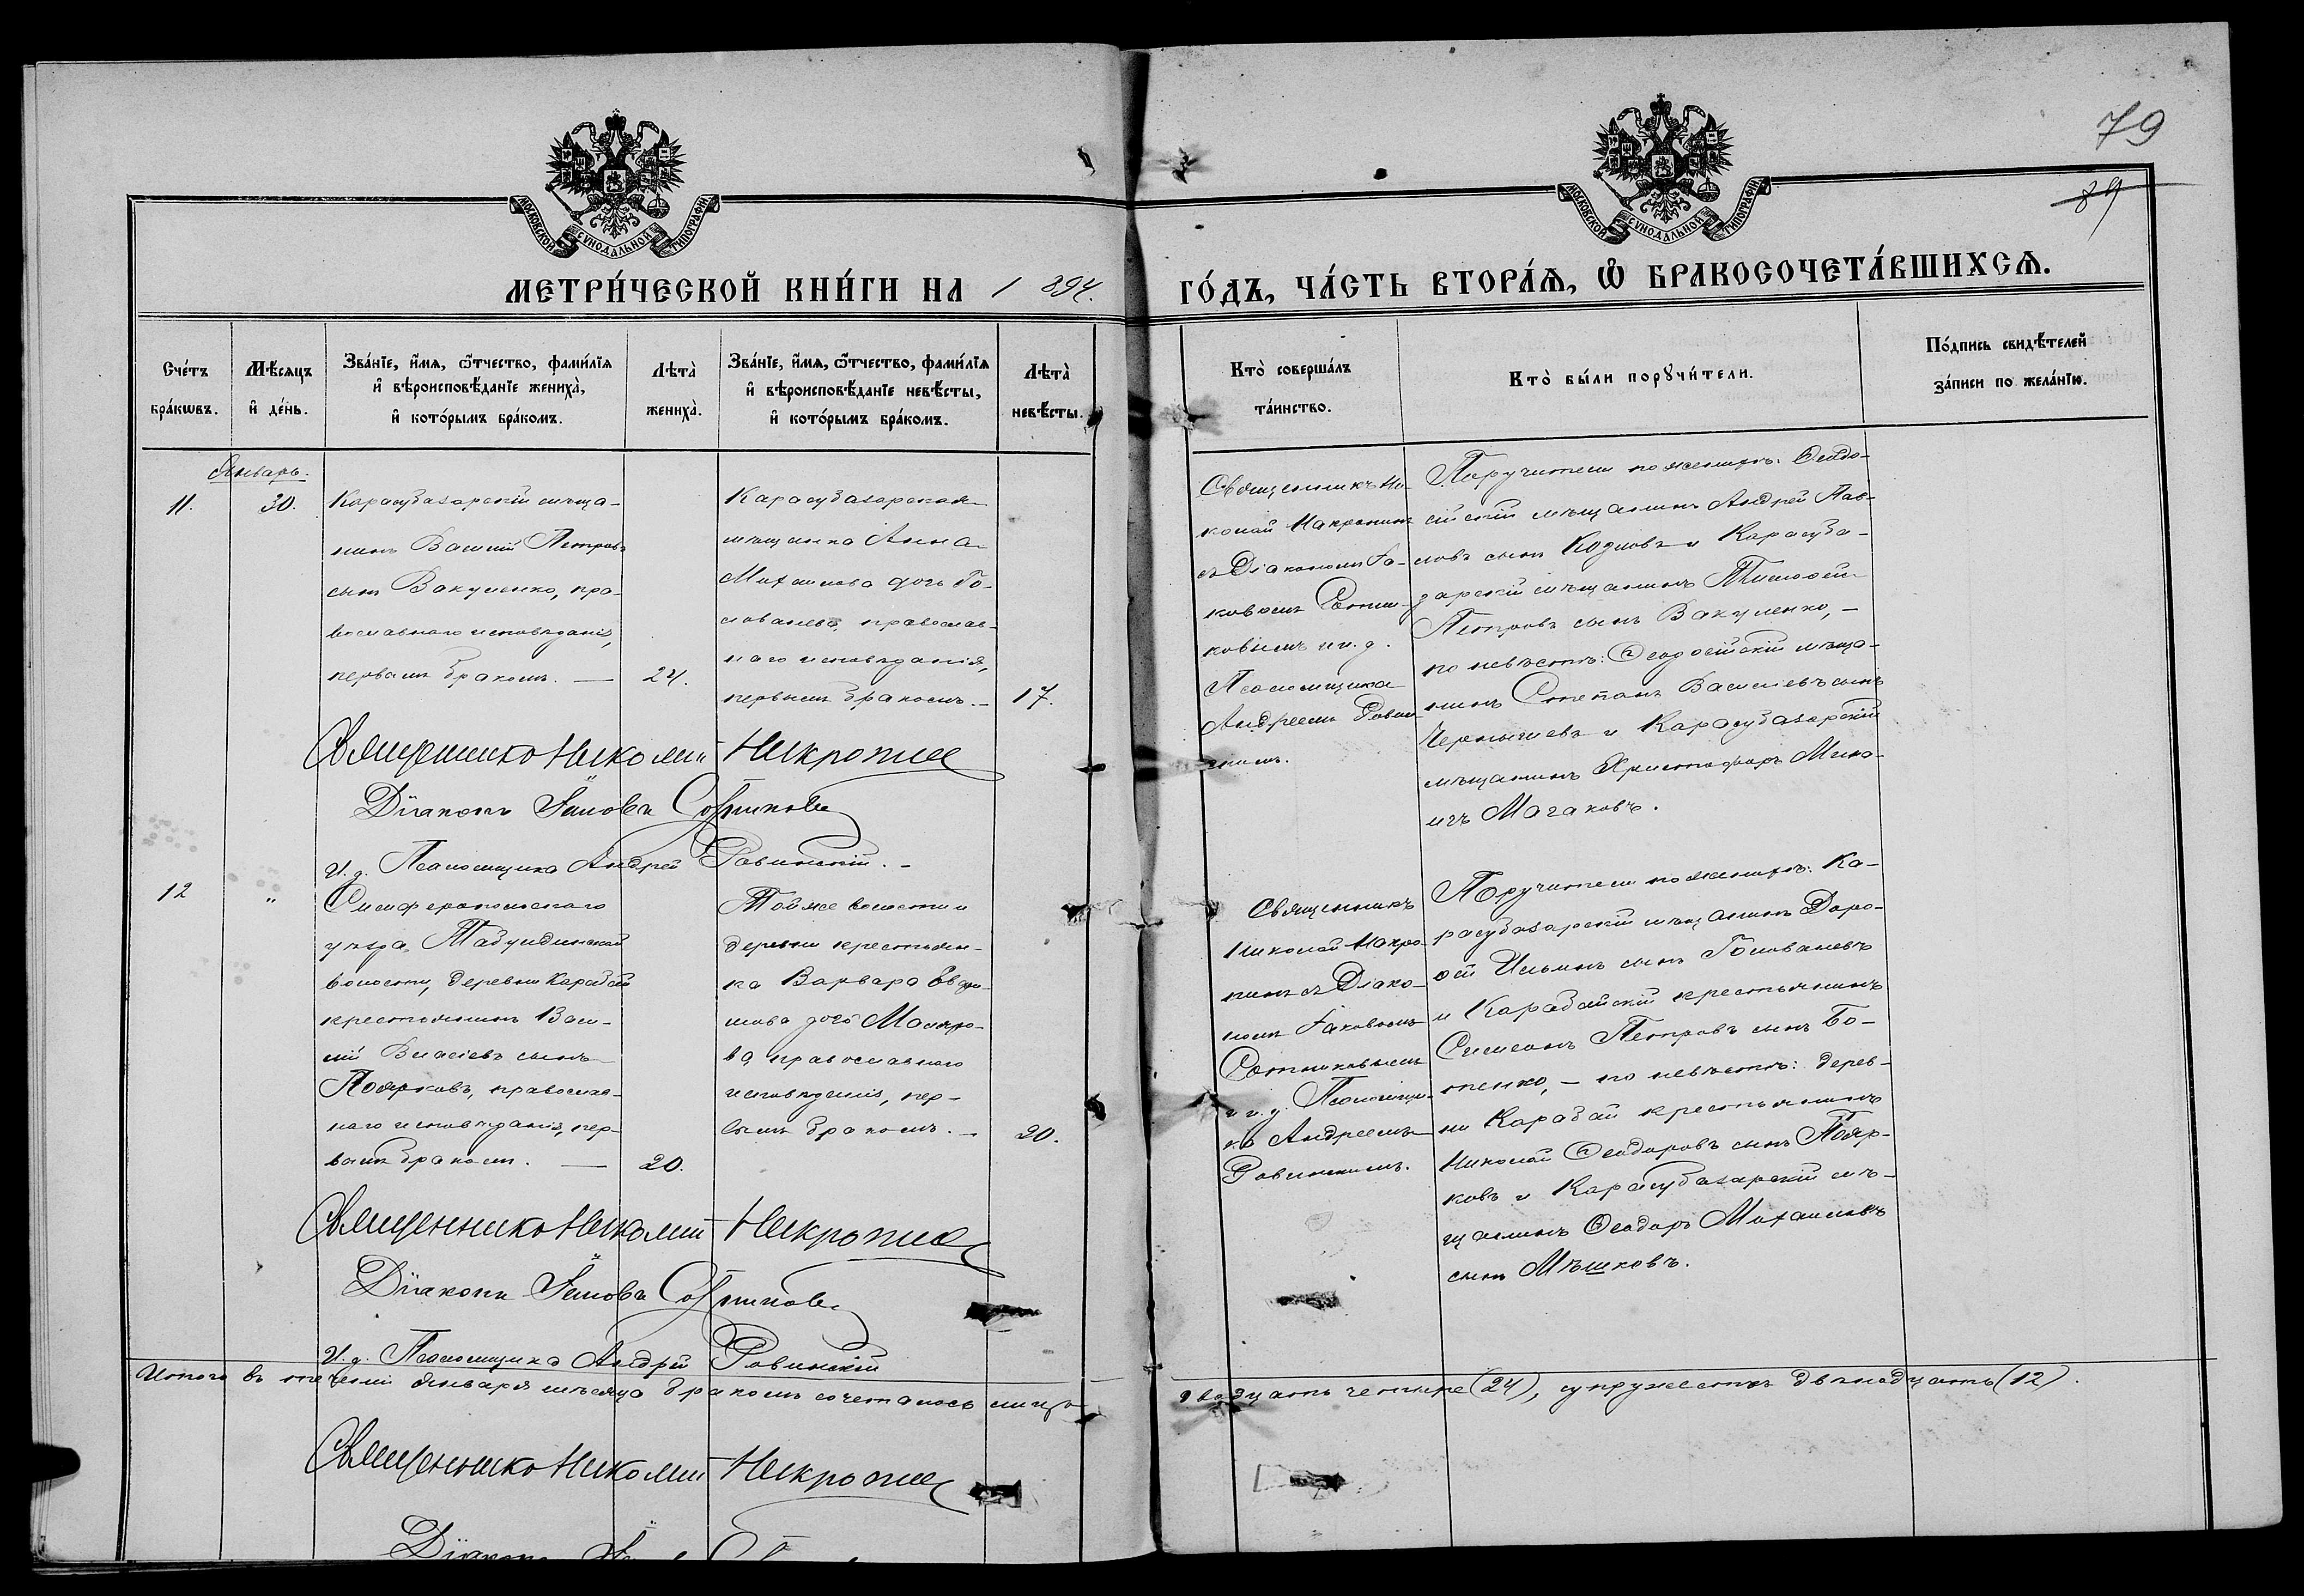 79
89
МОСКОВСКОЙ СѴНОДАЛЬНОЙ ТИПОГРАФІИ
МОСКОВСКОЙ СѴНОДАЛЬНОЙ ТИПОГРАФІИ
МЕТРИ́ЧЕСКОЙ КНИ́ГИ НА 1894.
ГО́ДЪ, ЧА́СТЬ ВТОРА́Ѧ, Ѡ БРАКОСОЧЕТА́ВШИХСѦ.
Сче́тъ
бра́кѡвъ.
Мѣ́сяцъ
и҆ де́нь.
Зва́нїе, и҆́мѧ, ѻ҆́тчество, фами́лїѧ
и҆ вѣроисповѣ́данїе жениха̀,
и҆ кото́рымъ бра́комъ.
Лѣта̀
жениха̀.
Зва́нїе, и҆́мѧ, ѻ҆́тчество, фами́лїѧ
и҆ вѣроисповѣ́данїе невѣ́сты,
и҆ кото́рымъ бра́комъ.
Лѣта̀
невѣ́сты.
Кто̀ соверша́лъ
та́инство.
Кто̀ бы́ли порꙋчи́тели.
По́дпись свидѣ́телей
за́писи по жела́нїю.
Январь.
11.
30.
Карасубазарскій мѣща-
нинъ Василій Петровъ
сынъ Вакуленко, пра-
вославнаго исповѣданія,
первымъ бракомъ. —
24.
Карасубазарская
мѣщанка Анна
Михаилова дочь Го-
лованева, православ-
наго исповѣданія,
первымъ бракомъ. —
17.
Священникъ Ни-
колай Макропинъ
съ Діакономъ Іа-
ковомъ Сотни-
ковымъ и и. д.
Псаломщика
Андреемъ Равин-
скимъ.
Поручители по женихѣ: Ѳеодо-
сійскій мѣщанинъ Андрей Пав-
ловъ сынъ Козловъ и Карасуба-
зарскій мѣщанинъ Тимофей
Петровъ сынъ Вакуленко, —
по невѣстѣ: Ѳеодосійскій мѣща-
нинъ Степанъ Васильевъ сынъ
Чернышевъ и Карасубазарскій
мѣщанинъ Христофоръ Мина-
ичъ Магаковъ.
Священникъ Николай Макропинъ
Діаконъ Іаковъ Сотниковъ
И. д. Псаломщика Андрей Равинскій. —
12
"
Симферопольскаго
уѣзда, Табулдинской
волости, деревни Карабай
крестьянинъ Васи-
лій Власіевъ сынъ
Поярковъ, православ-
наго исповѣданія, пер-
вымъ бракомъ. —
20.
Той же волости и
деревни крестьян-
ка Варвара Евдо-
кимова дочь
ва православнаго
исповѣданія, пер-
вымъ бракомъ. —
20.
Священникъ
Николай Макро-
пинъ съ Діако-
номъ Іаковомъ
Сотниковымъ
и и. д. Псаломщи-
ка Андреемъ
Равинскимъ.
Поручители по женихѣ: Ка-
расубазарскій мѣщанинъ Доро-
фей Ильинъ сынъ Голованевъ
и Карабайскій крестьянинъ
Симеонъ Петровъ сынъ Бо-
тенко, — по невѣстѣ: дерев-
ни Карабай крестьянинъ
Николай Ѳеодоровъ сынъ Пояр-
ковъ и Карасубазарскій мѣ-
щанинъ Ѳеодоръ Михаиловъ
сынъ Мѣшковъ.
Священникъ Николай Макропинъ
Діаконъ Іаковъ Сотниковъ
И. д. Псаломщика Андрей Равинскій
Итого въ теченіи Января мѣсяца бракомъ сочеталось лицъ двадцать четыре (24), супружествъ двѣнадцать (12).
Священникъ Николай Макропинъ
Діаконъ